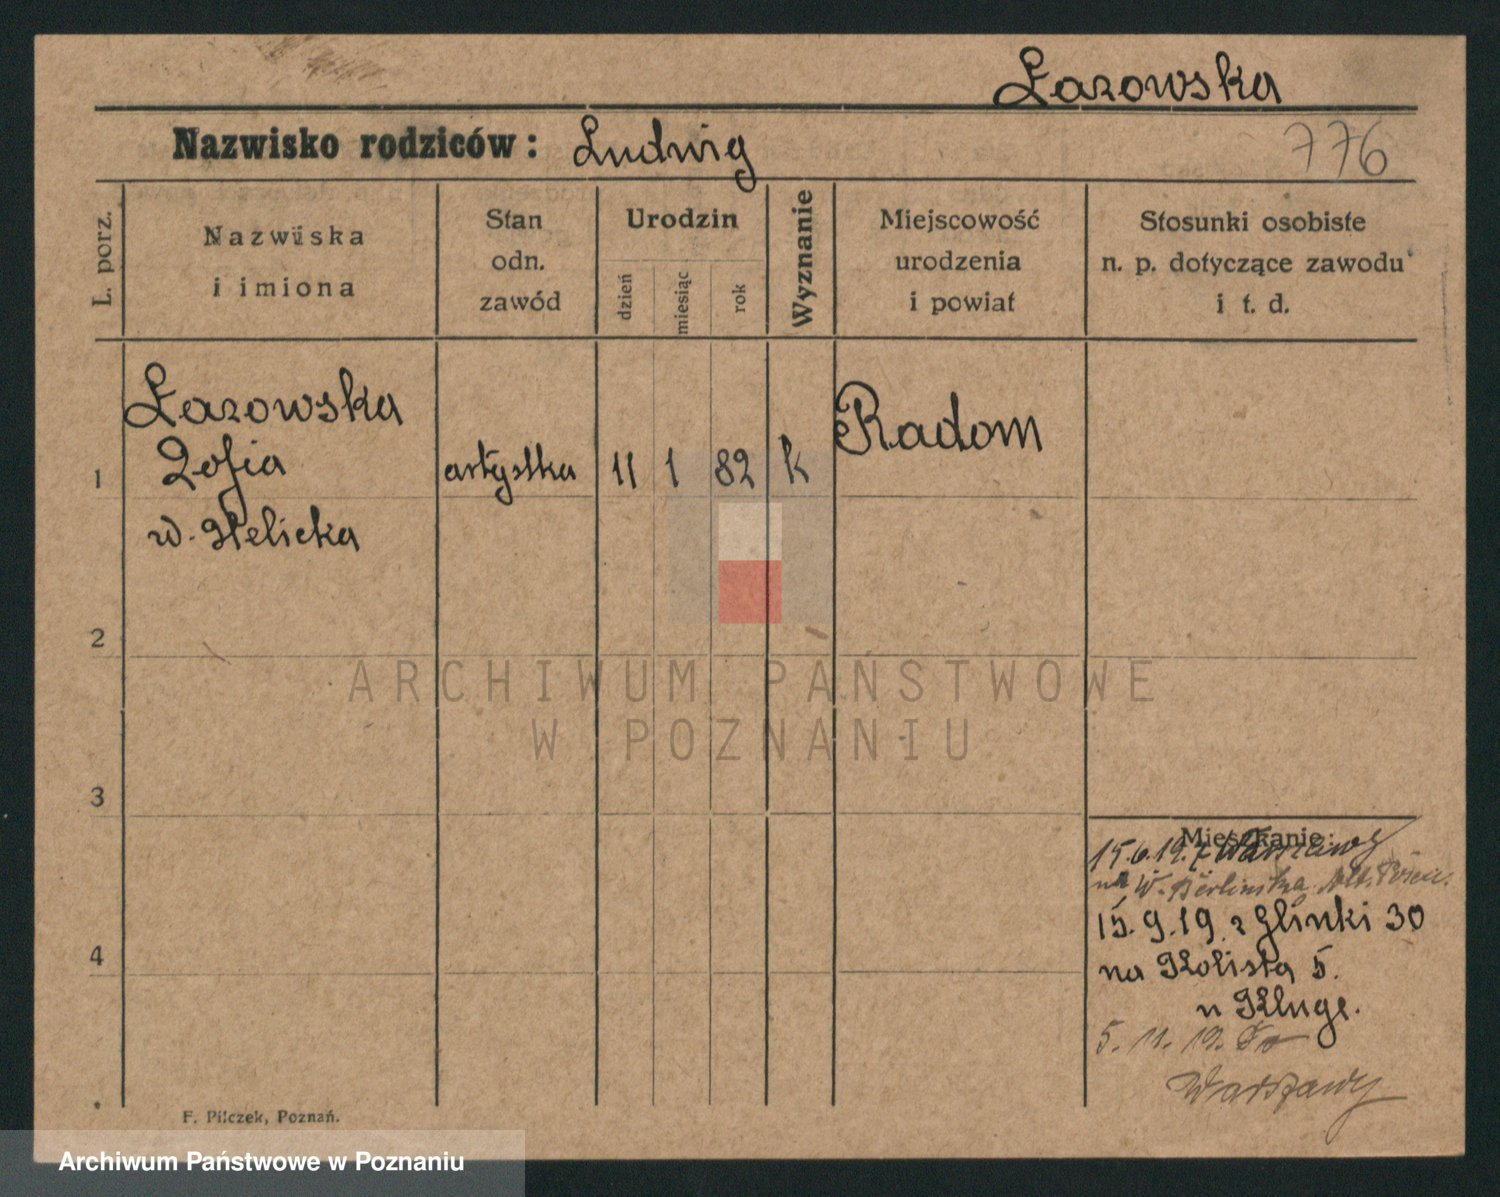 Łazowska
Nazwisko rodziców: Ludwig
776
L. porz.
Nazwiska
i imiona
Stan
odn.
zawód
Urodzin
dzień
miesiąc
rok
Wyznanie
Miejscowość
urodzenia
i powiat
Stosunki osobiste
n. p. dotyczące zawodu
i t. d.
Łazowska
Zofia
w. Helicka
1
artystka
11
1
82
k
Radom
2
3
4
ARCHIWUM PAŃSTWOWE
W POZNANIU
Mieszkanie:
15.6.19. z Warszawy
na W. Berlińska
15.9.19 z Glinki 30
na Kolista 5.
u Kluge.
5.11.19. Do
Warszawy
F. Pilczek, Poznań.
Archiwum Państwowe w Poznaniu